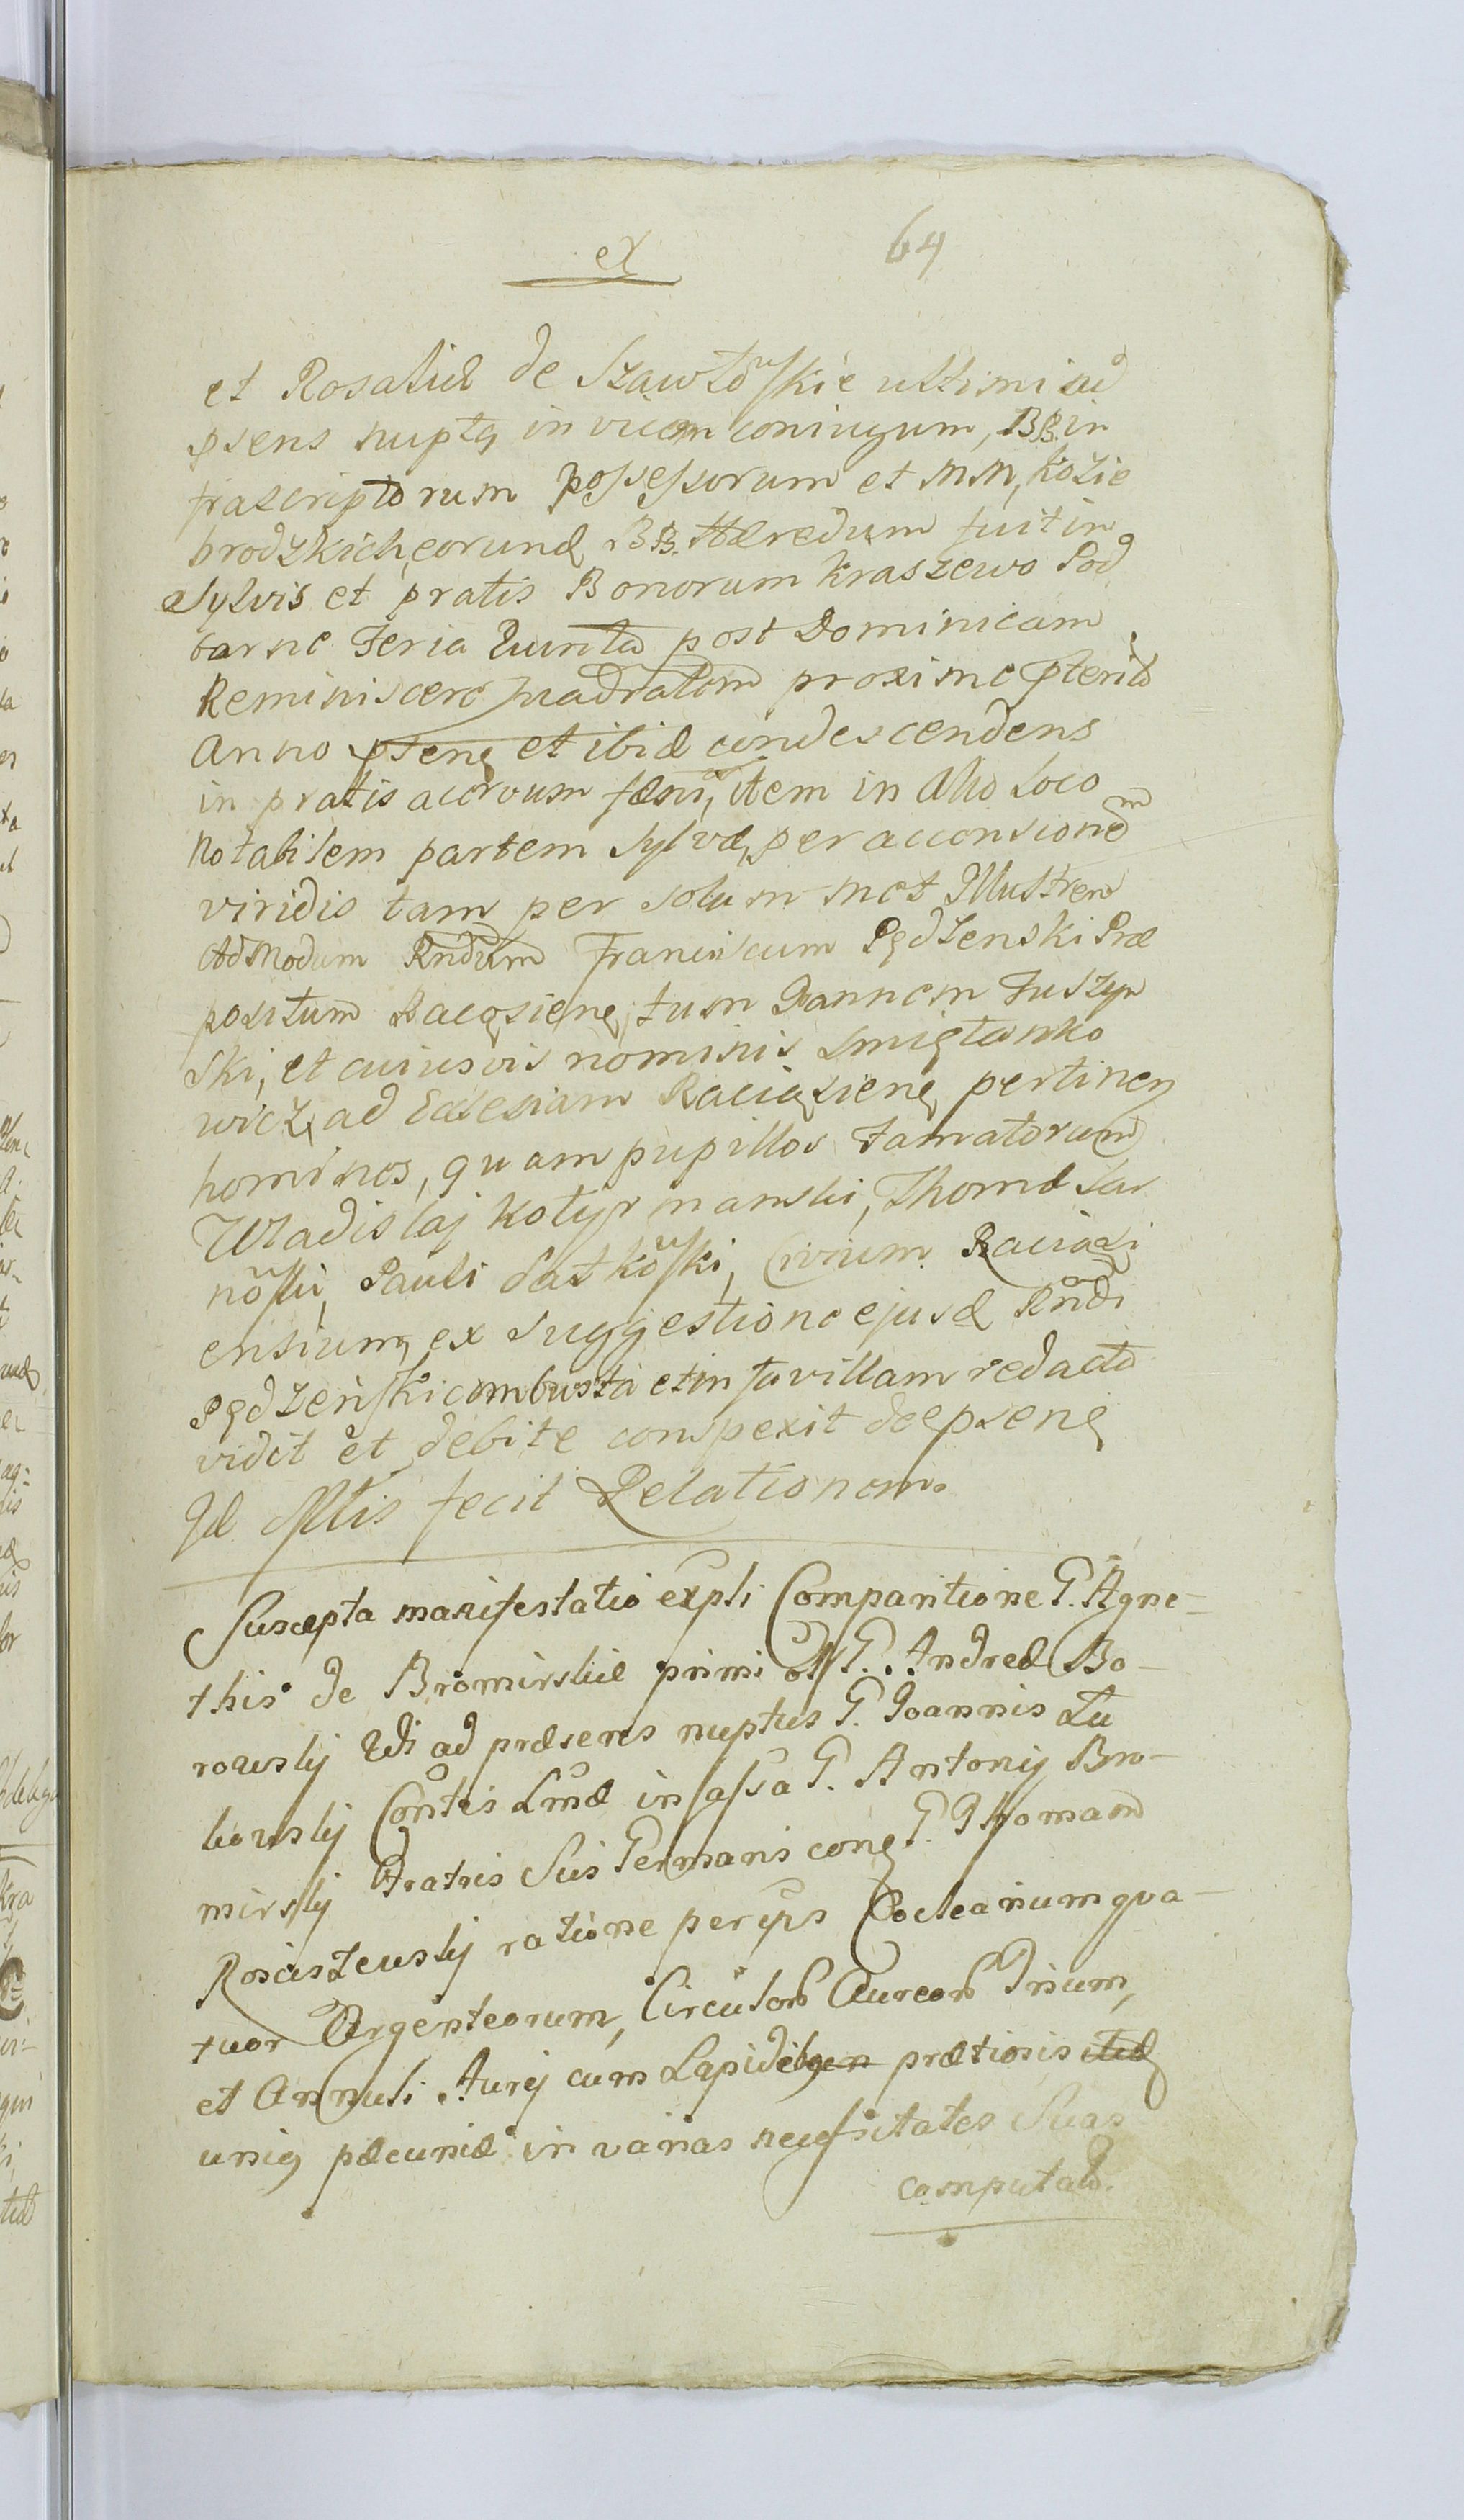 ex
64
et Rosaliæ de Szawłoskie ultimi ad
psens nupta invicem coniugum, BB. in
frascriptorum possessorum et MM, Kozie
brodzkich, eorund BB. Hæredum fuit in
Sylvis et pratis Bonorum Kraszewo Pod
borne Feria Quinta post Dominicam
Reminiscere quadratam proxime pterito
Anno psenę et ibid condescendens
in pratis acervum fæni, item in alio Loco
Notabilem partem Sylvæ, per accensionem
viridis tam per solummet Illustrem
Admodum Rndum Franciscum Pędzenski Præ
positum Raciązienę, tum Joannem Tuszyn
ski, et cuiusvis nominis Smiętanko
wicz, ad Ecclesiam Raciązienę pertinen
homines, quam pupillos Famatorum
Wladislaj Kotyrmanski, Thomæ Sar
noski, Pauli Satkoski, Civium Raciązi
ensium, ex Suggestione ejusd Rndi
Pędzenski combusta et in favillam redacta
vidit et debite conspexit de psenę
Id Offtis fecit Relationem.
Suscepta manifestatio expti Comparitione G. Agne-
this de Bromirskie primi olt G. Andreæ Bo-
rowskij 2di ad præsens nuptus G. Joannis Lu
bowskij Contis Lmæ in assa G. Antonij Bro-
mirskij Fratris Sui Germani conę G. Thomam
Rosciszewskij ratione perceps Cocleanum qva-
tuor Argenteorum, Circulor Aureor Trium,
et Annuli Aurej cum Lapide prætiosis
unię pæcuniæ in varias necessitates Suas
computat.